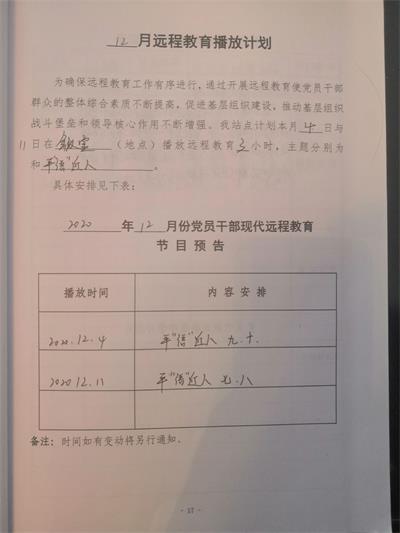 12月远程教育播放计划
为确保远程教育工作有序进行，通过开展远程教育使党员干部
群众的整体综合素质不断提高，促进基层组织建设，推动基层组织
战斗堡垒和领导核心作用不断增强。我站点计划本月4日与
11日在（地点）播放远程教育3小时，主题分别为
和平“语”近人。
具体安排见下表：
2020年12月份党员干部现代远程教育
节目预告
播放时间 内容安排
2020.12.4 平“语”近人 九.十.
2020.12.11 平“语”近人 七.八
备注：时间如有变动将另行通知。
- 17 -